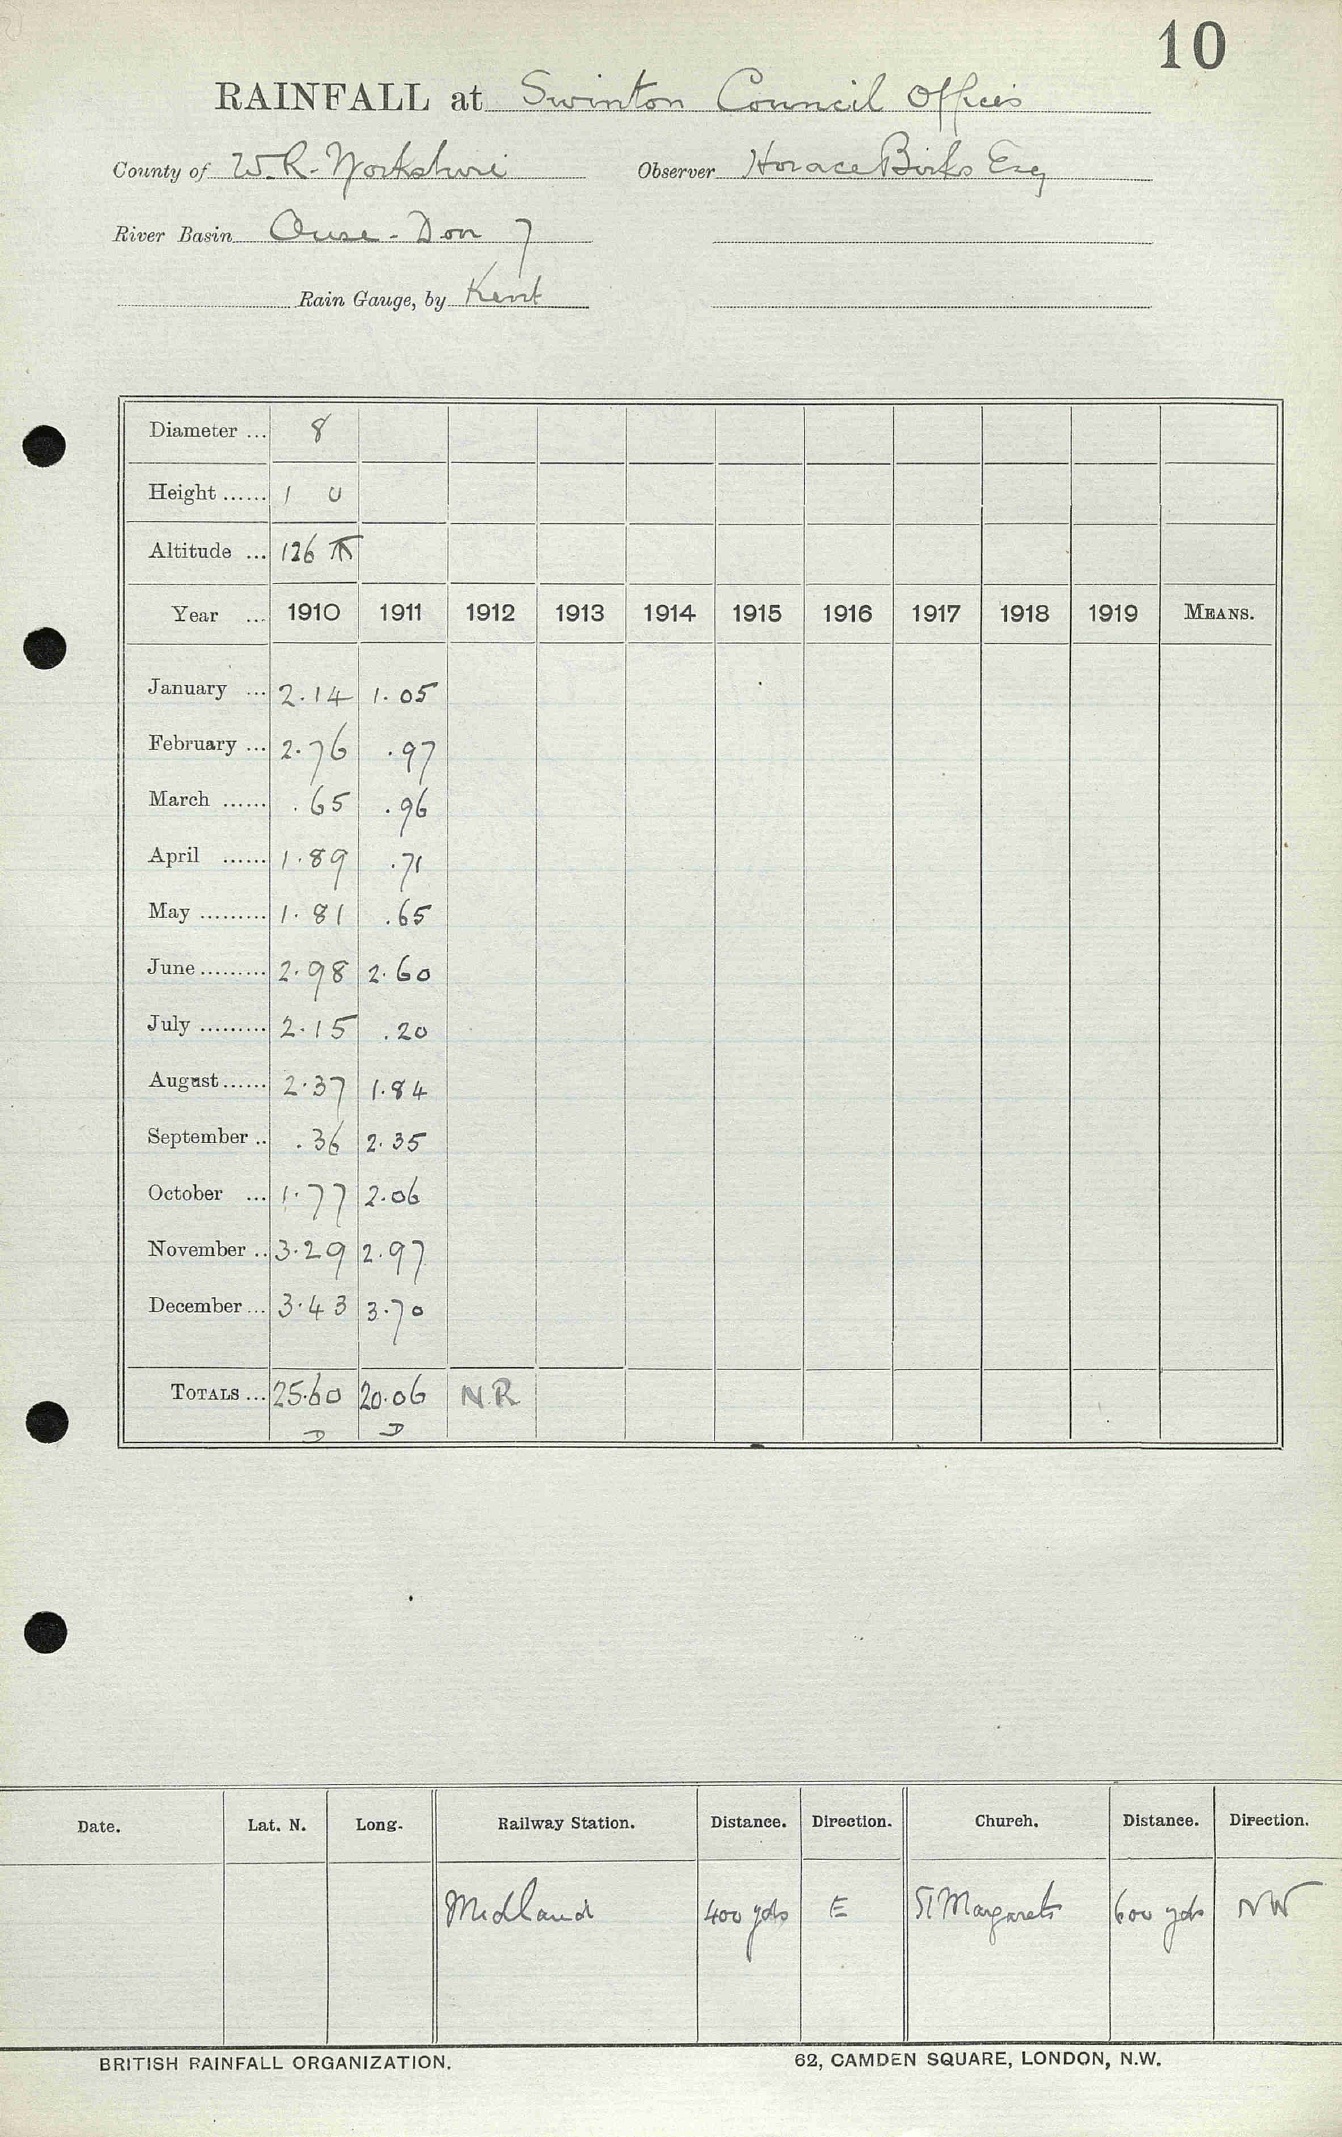 10
RAINFALL at Swinton Council Offices
County of W.R. Yorkshire Observer Horace Birks Esq
River Basin Ouse - Don 7
Rain Gauge, by Kent
Diameter ... 8
Height ...... 1 0
Altitude ... 126
Year ... 1910 1911 1912 1913 1914 1915 1916 1917 1918 1919 MEANS.
January ... 2.14 1.05
February ... 2.76 .97
March ...... .65 .96
April ...... 1.89 .71
May ......... 1.81 .65
June ......... 2.98 2.60
July ......... 2.15 .20
August ...... 2.37 1.84
September .. .36 2.35
October ... 1.77 2.06
November .. 3.29 2.97
December ... 3.43 3.70
TOTALS ... 25.60 20.06 N.R
D D
Date. Lat. N. Long. Railway Station. Distance. Direction. Church. Distance. Direction.
Midland 400 yds E St Margarets 600 yds NW
BRITISH RAINFALL ORGANIZATION. 62, CAMDEN SQUARE, LONDON, N.W.